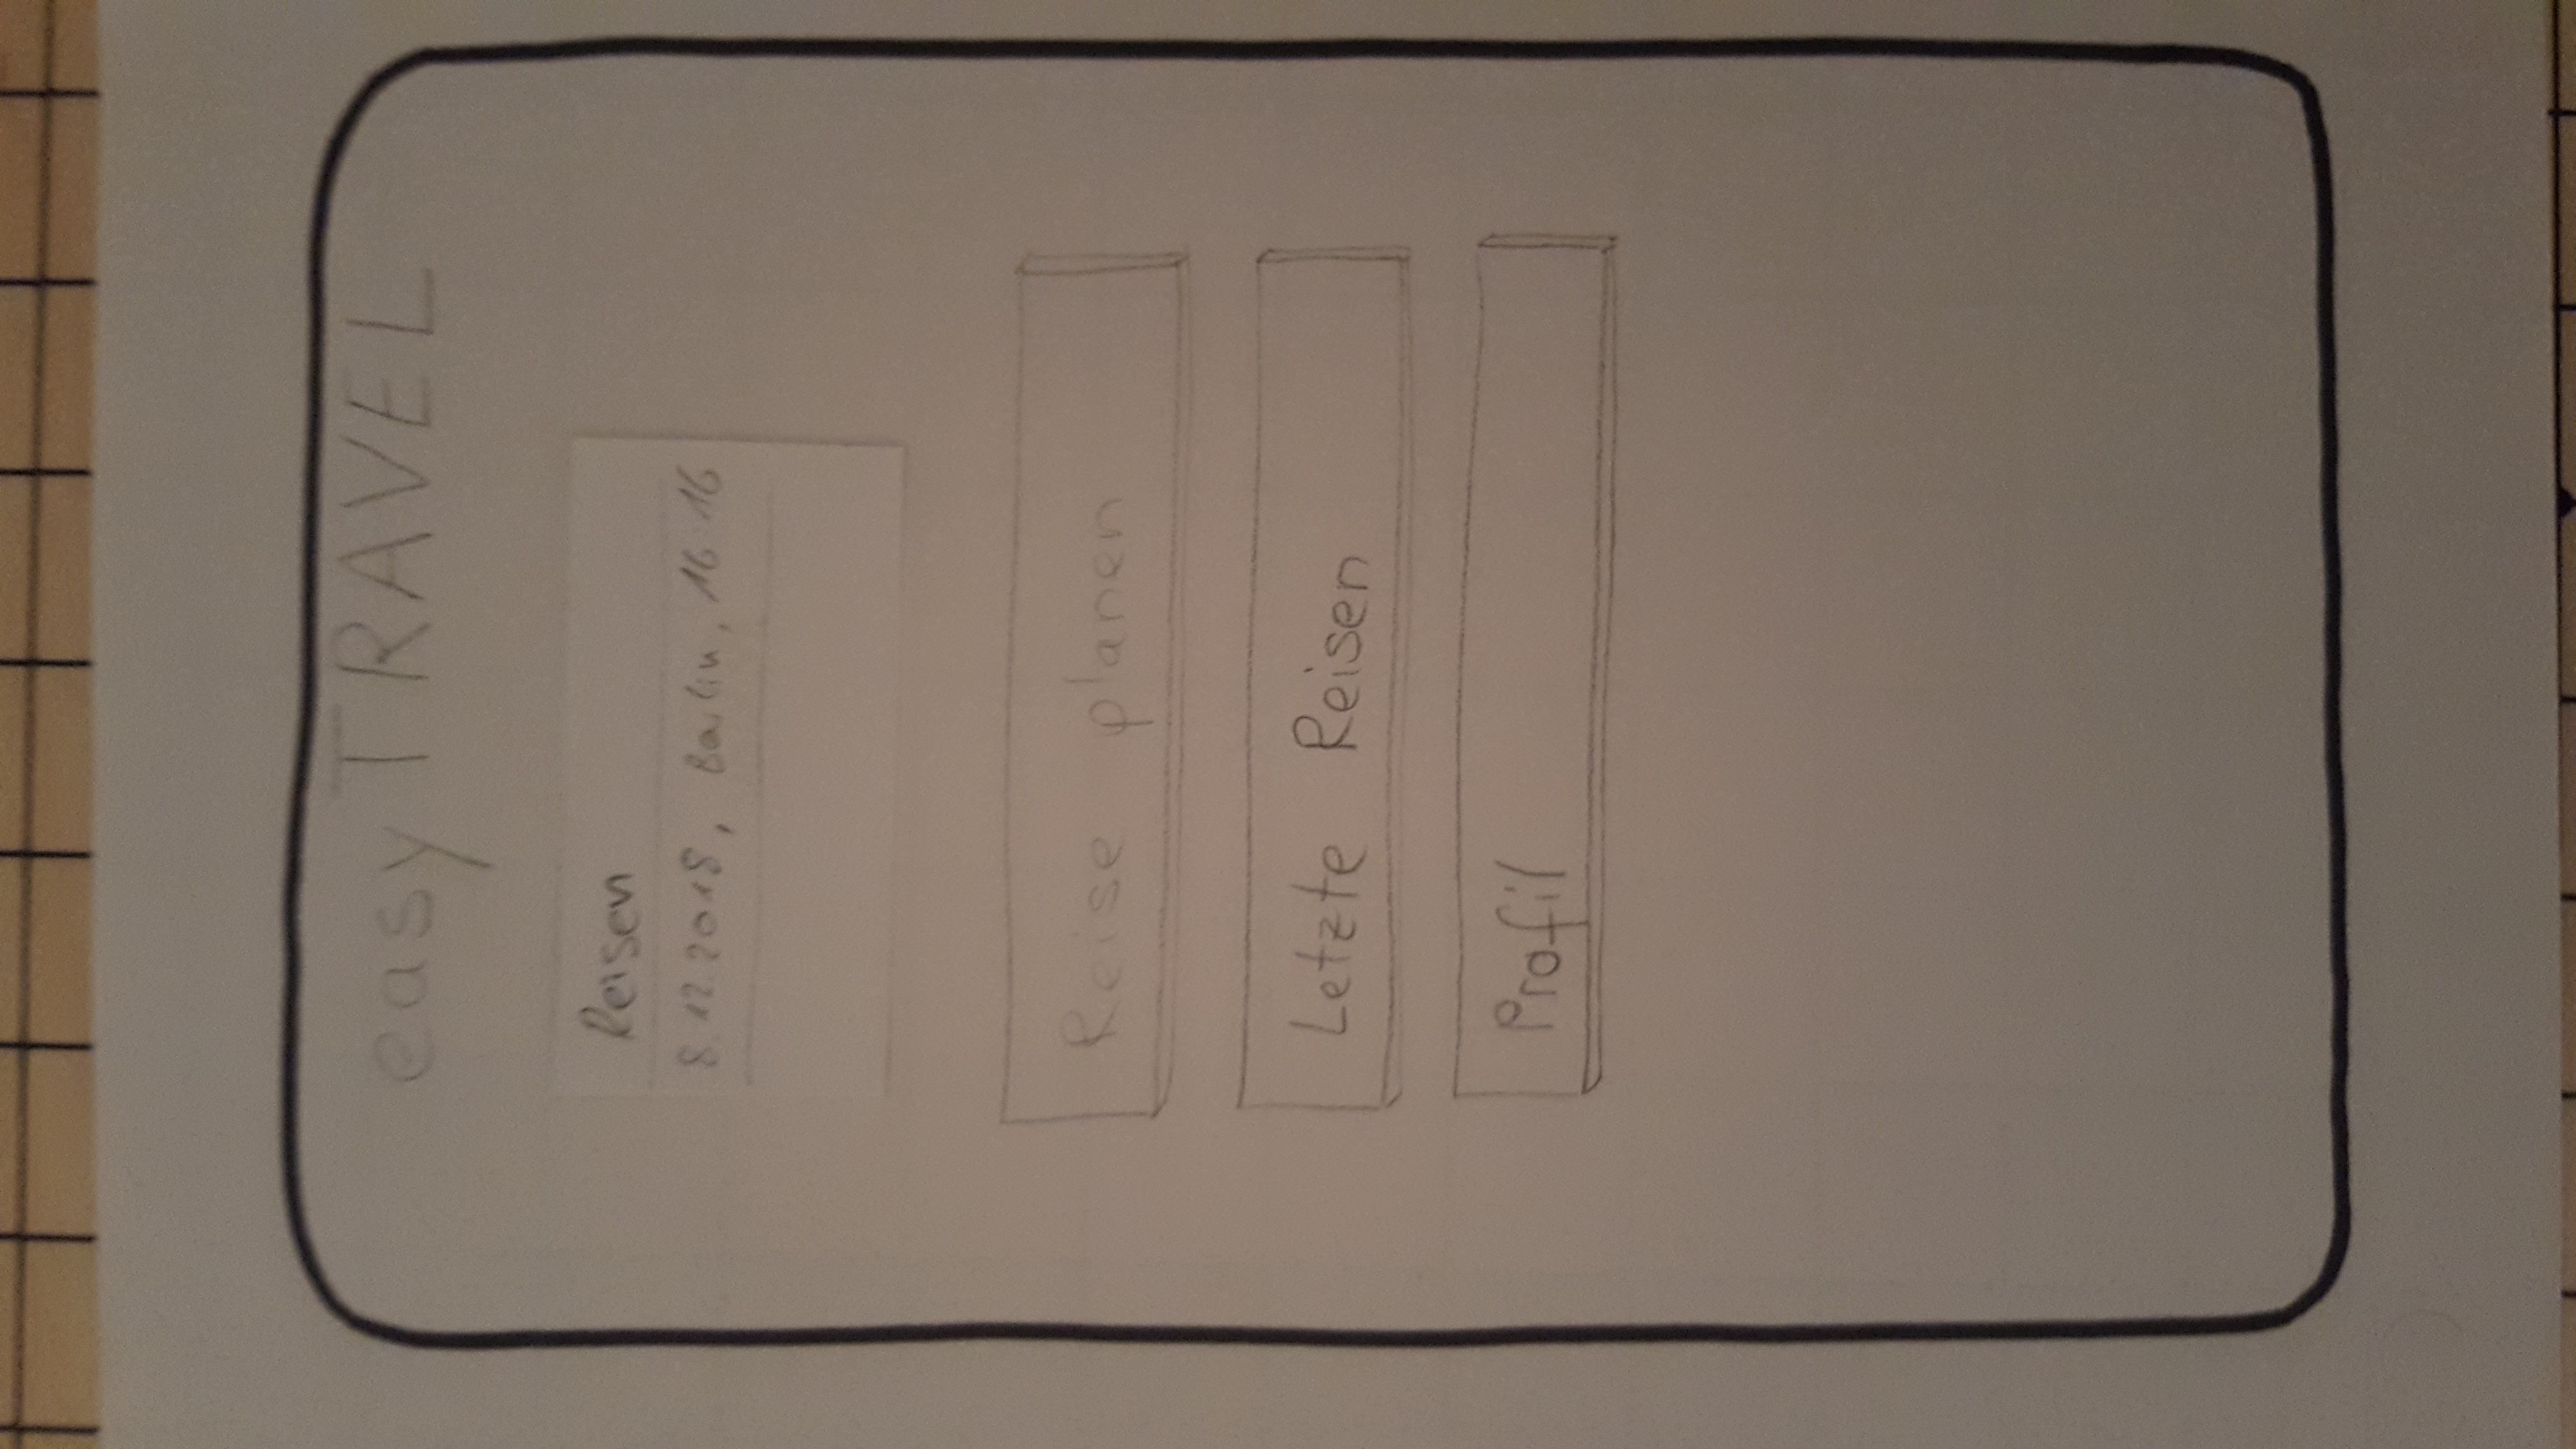 easyTRAVEL
Reisen
8.12.2018, Berlin, 16:16
Reise planen
Letzte Reisen
Profil